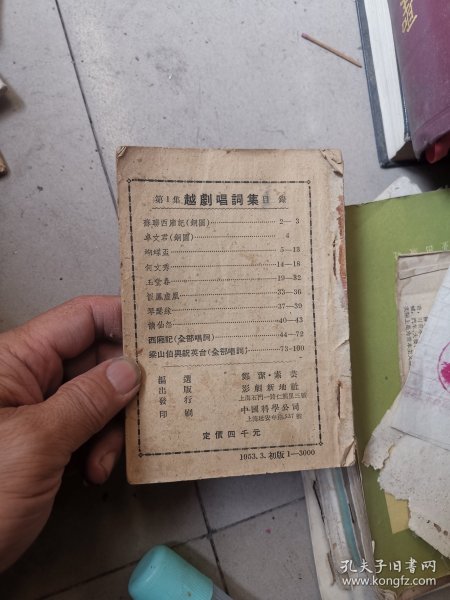 第1集 越劇唱詞集 目錄
蘇聯西廂記(銅圖) 2—3
卓文君(銅圖) 4
蝴蝶盃 5—13
何文秀 14—18
玉堂春 19—32
假鳳虛凰 33—36
琴緣 37—39
情仙怨 40—43
西廂記(全部唱詞) 44—72
梁山伯與祝英台(全部唱詞) 73—100
編選 鄭潔·素芸
出版 影劇新地社
發行 上海石門一路仁里三號
印刷 中國科學公司
上海延安中路537號
定價四千元
1953.3.初版1—3000
孔夫子旧书网
www.kongfz.com